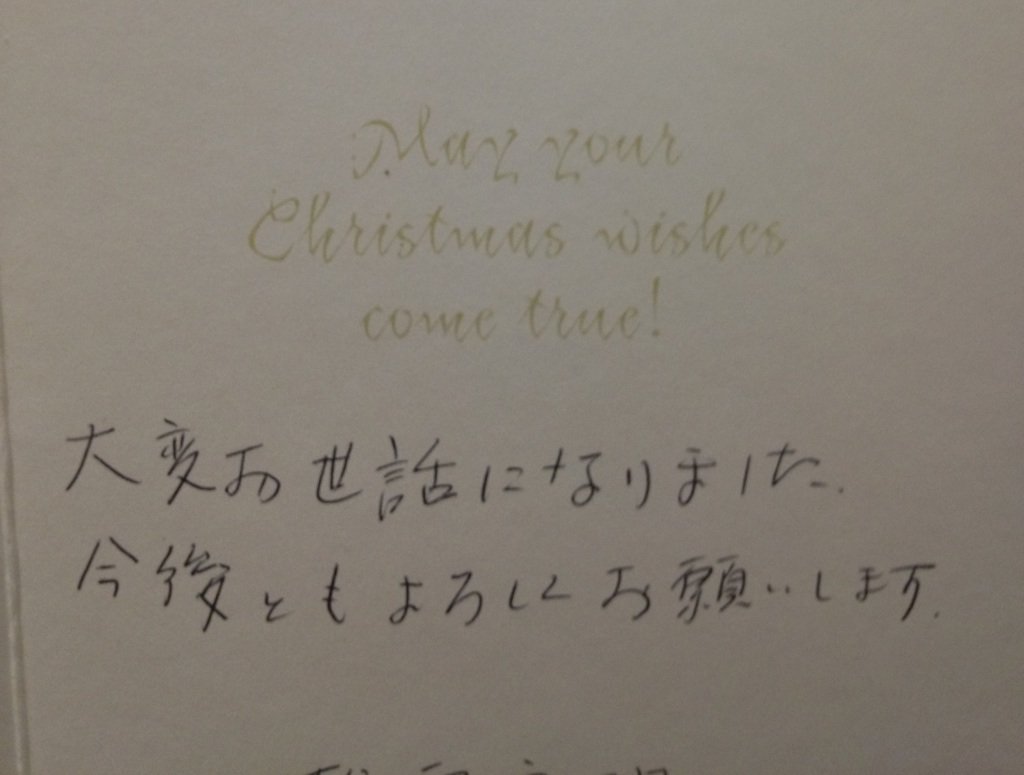 May your
Christmas wishes
come true!
大変お世話になりました.
今後ともよろしくお願いします.